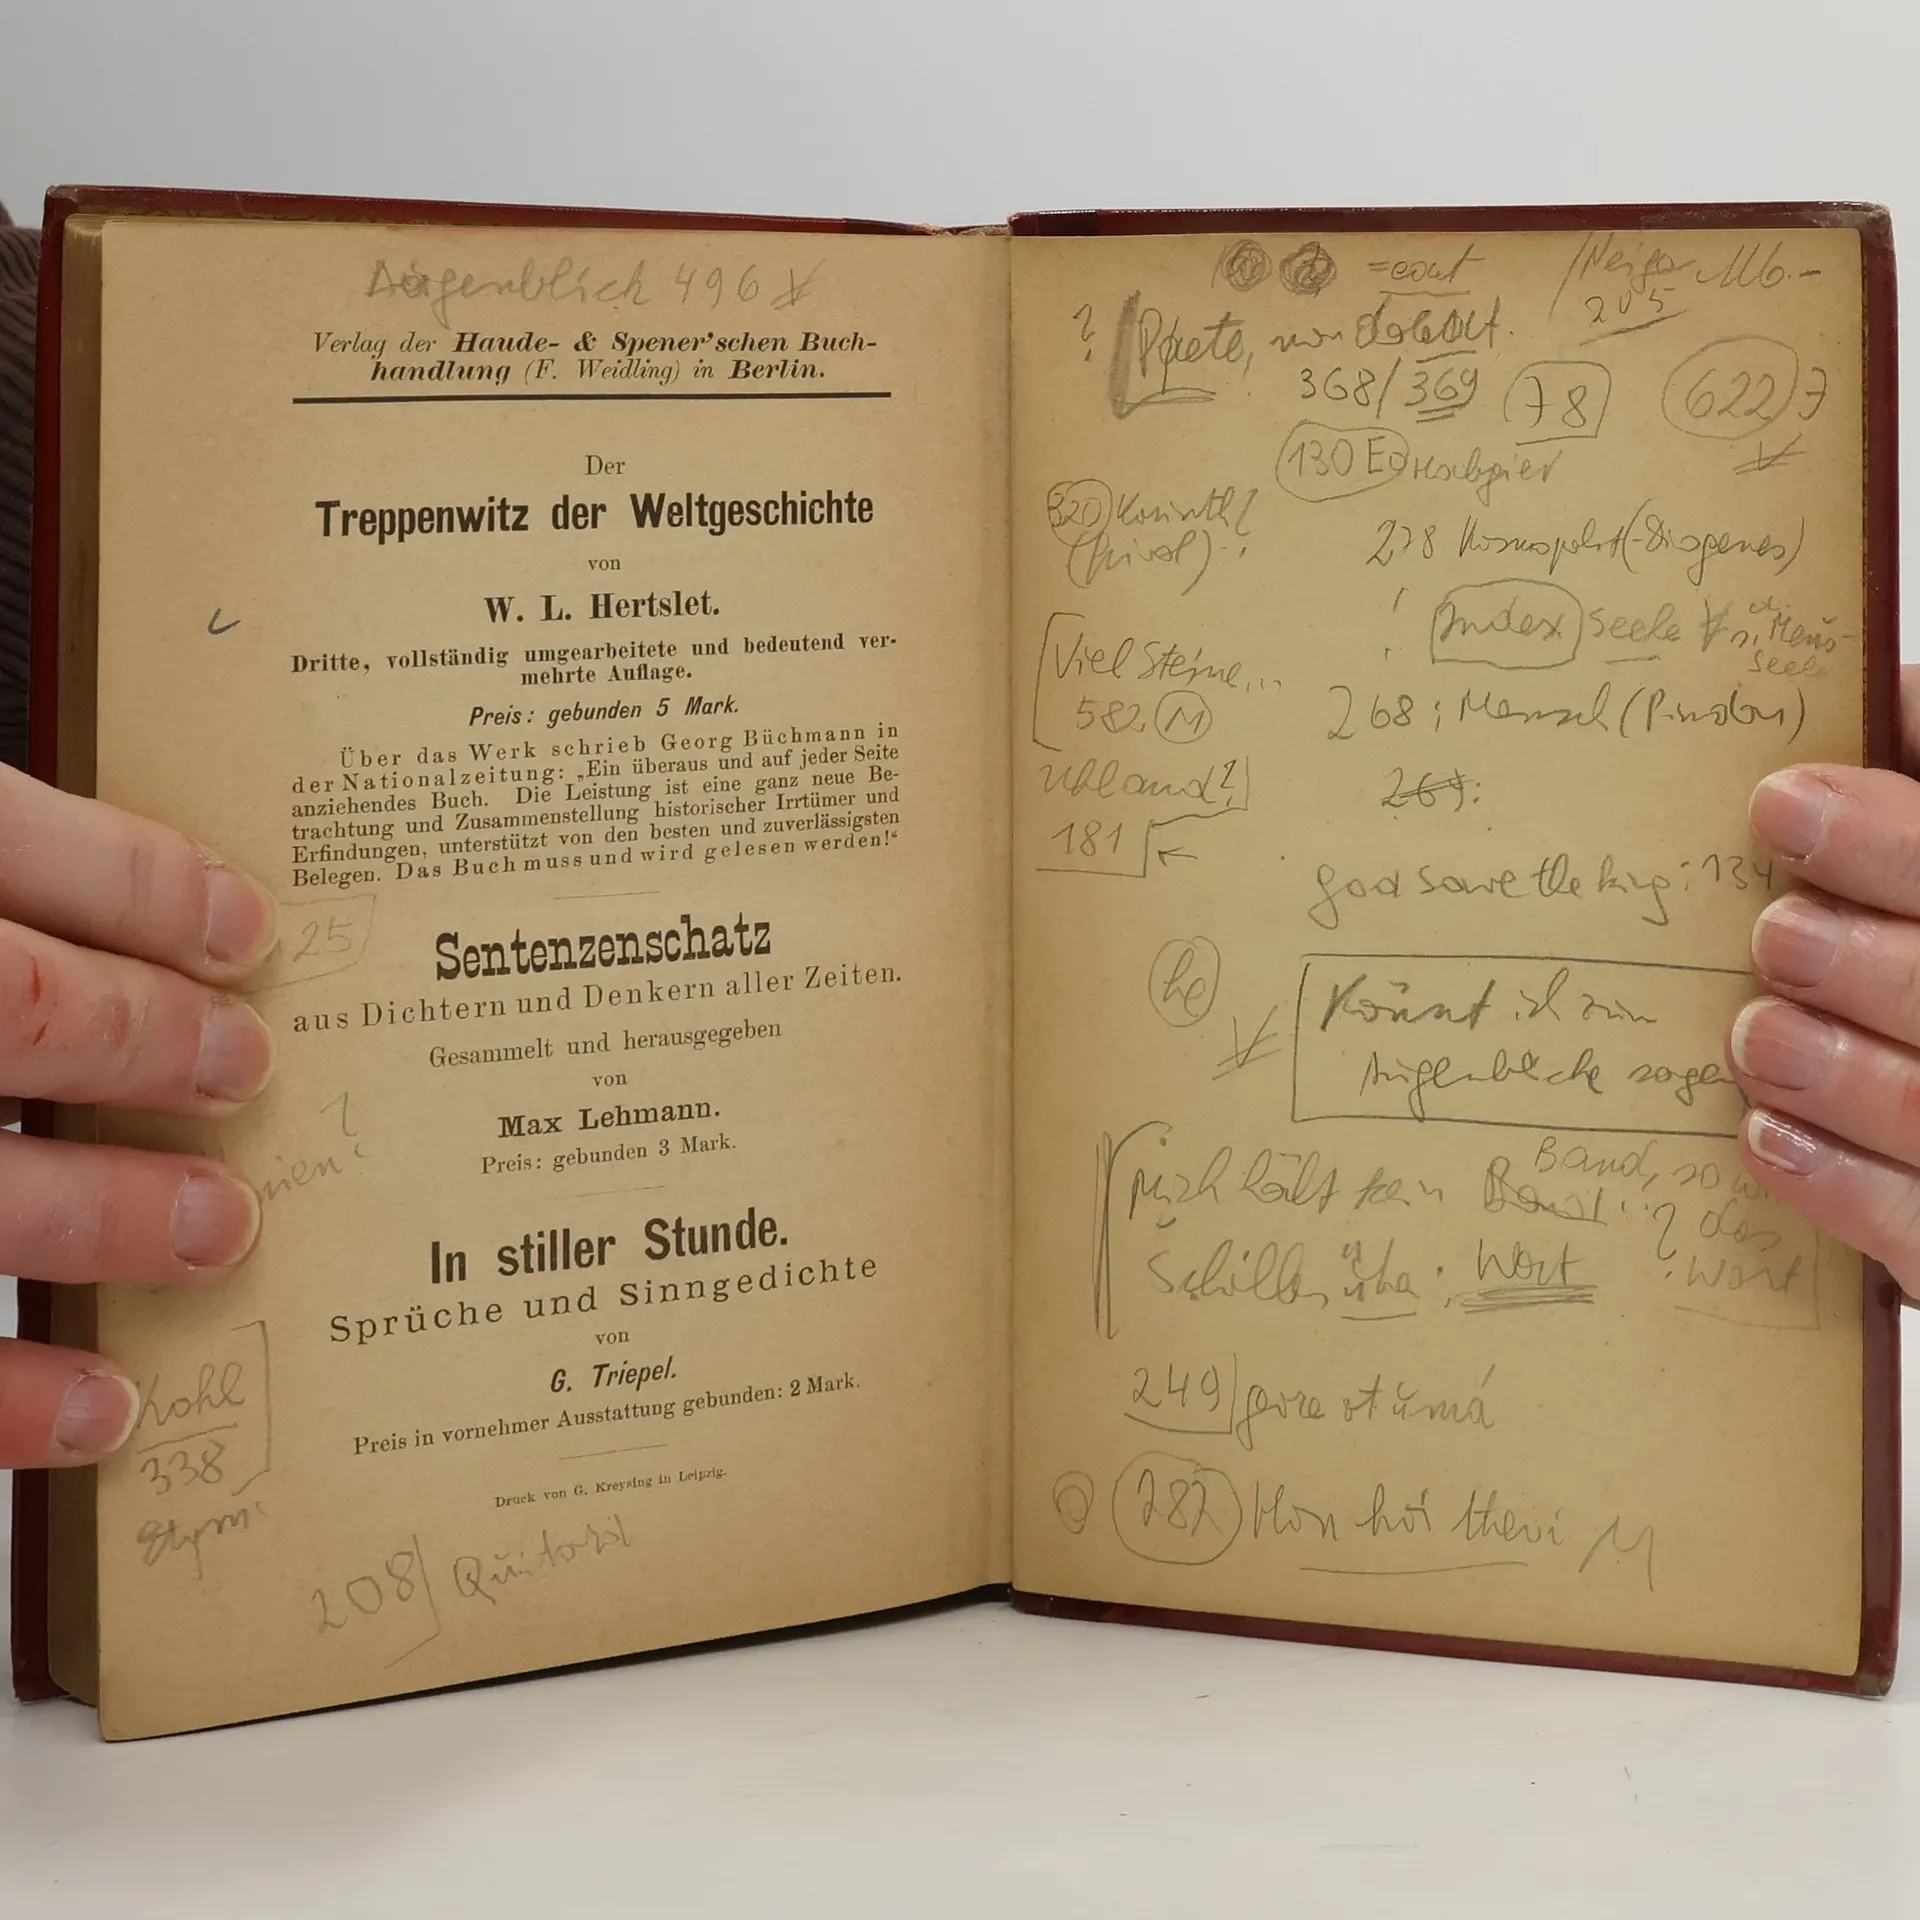 Augenblick 496
Verlag der Haude- & Spener'schen Buch-
handlung (F. Weidling) in Berlin.
Der
Treppenwitz der Weltgeschichte
von
W. L. Hertslet.
Dritte, vollständig umgearbeitete und bedeutend ver-
mehrte Auflage.
Preis: gebunden 5 Mark.
Über das Werk schrieb Georg Büchmann in
der Nationalzeitung: „Ein überaus und auf jeder Seite
anziehendes Buch. Die Leistung ist eine ganz neue Be-
trachtung und Zusammenstellung historischer Irrtümer und
Erfindungen, unterstützt von den besten und zuverlässigsten
Belegen. Das Buch muss und wird gelesen werden!“
25
Sentenzenschatz
aus Dichtern und Denkern aller Zeiten.
Gesammelt und herausgegeben
von
Max Lehmann.
Preis: gebunden 3 Mark.
In stiller Stunde.
Sprüche und Sinngedichte
von
G. Triepel.
Preis in vornehmer Ausstattung gebunden: 2 Mark.
Druck von G. Kreysing in Leipzig.
Kohl
338
208
205
?
368/369 78 622
130
320 Korinth?
278 Kosmopolit (Diogenes)
! Index Seele
Seele
Viel Steine...
582 M
268: Mensch (Pindar)
Uhland?
181
269:
god save the king: 134
he
Könnt ich zum
Augenblicke sagen
Band, so
Mich hält kein Band ..? das
Schiller Wort Wort
249
282 Hon hoi theoi M